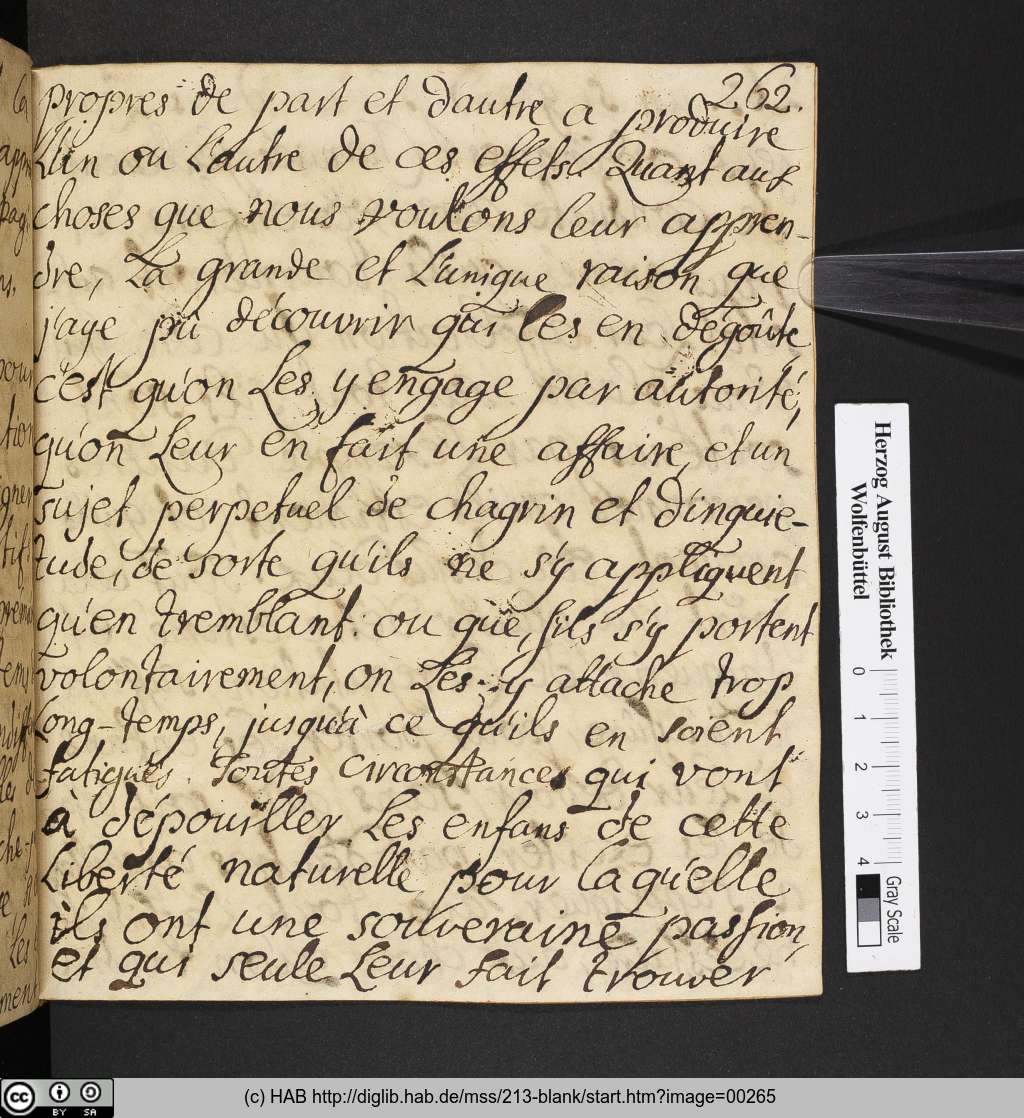 262.
propres de part et dautre a produire
L'un ou L'autre de ces effets. Quant aux
choses que nous voulons leur appren-
dre, La grande et L'unique raison que
j'aye pû découvrir qui les en dégoûte,
c'est qu'on Les y engage par autorité,
qu'on Leur en fait une affaire, et un
sujet perpetuel de chagrin et d'inquie-
tude, de sorte qu'ils ne s'y appliquent
qu'en tremblant. ou que, s'ils s'y portent
volontairement, on Les y attache trop
Long-temps, jusqu'à ce qu'ils en soient
fatigués. Toutes circonstances qui vont
à dépouiller Les enfans de cette
Liberté naturelle pour laqu'elle
ils ont une souveraine passion,
et qui seule Leur fait trouver
Herzog August Bibliothek
Wolfenbüttel
0 1 2 3 4
Gray Scale
cc BY SA
(c) HAB http://diglib.hab.de/mss/213-blank/start.htm?image=00265